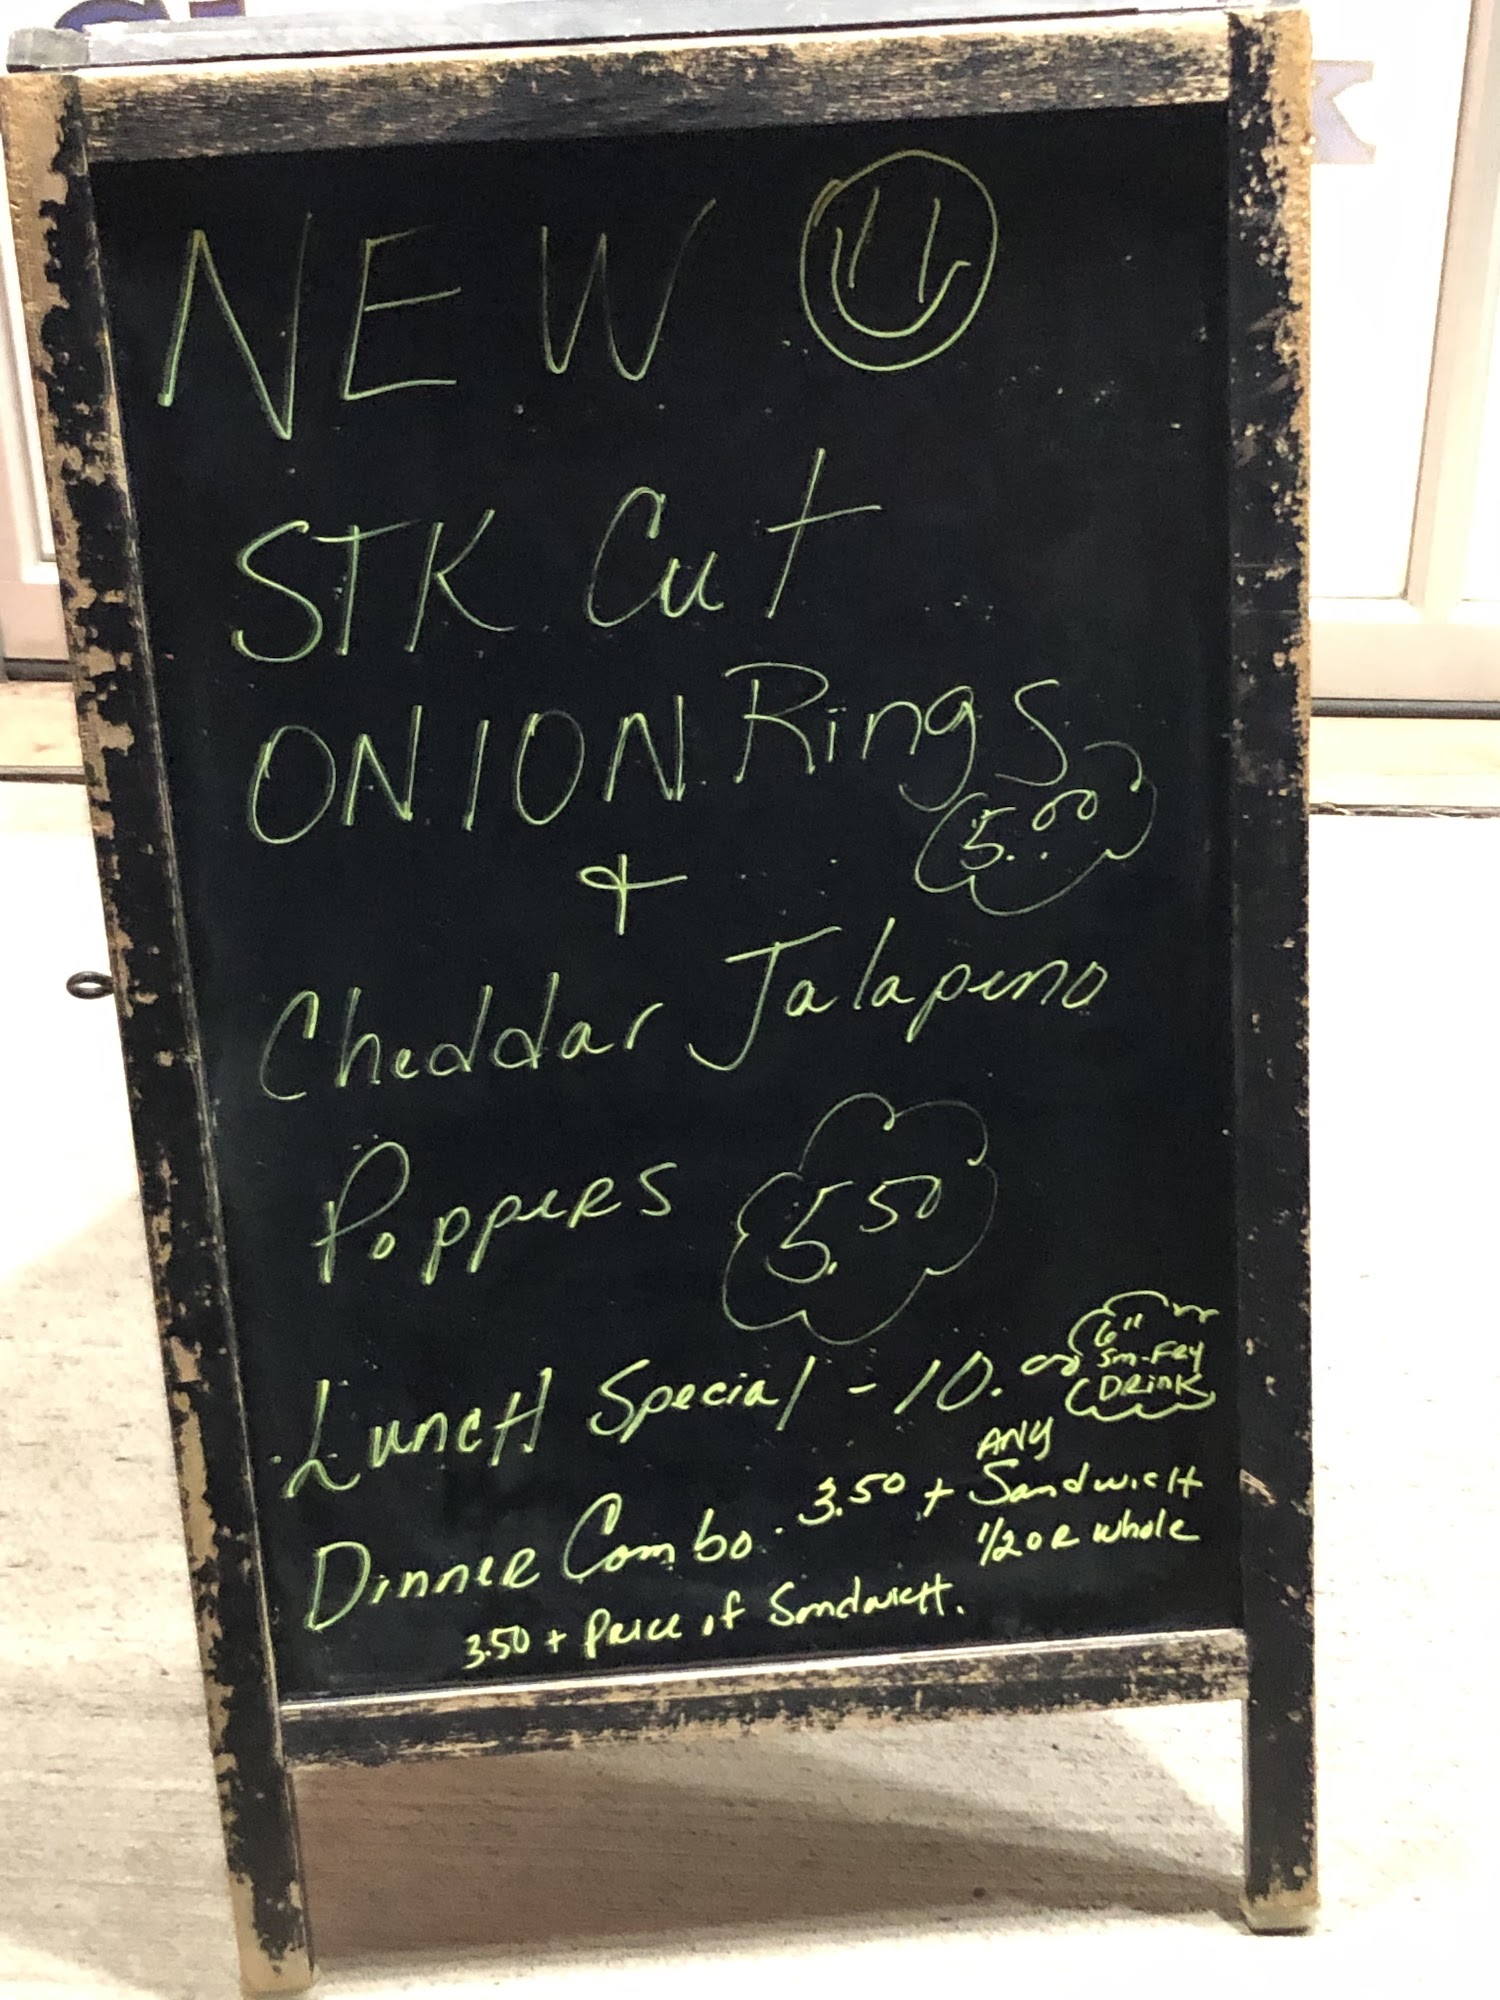 NEW
STK Cut
ONION Rings
5.00
+
Cheddar Jalapeno
Poppers 5.50
Lunch Special - 10.00
6"
Sm-Fry
Drink
Dinner Combo. 3.50 + ANY
Sandwich
1/2 OR whole
3.50 + Price of Sandwich.